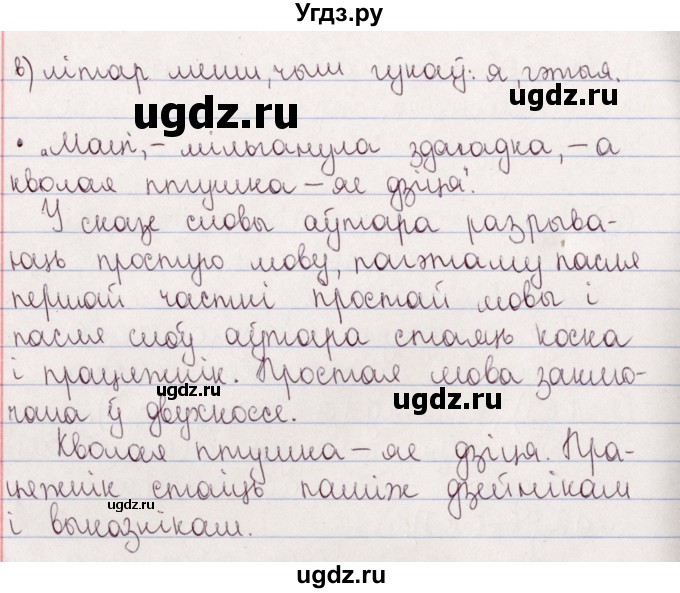 Угдз.ру
в) літар менш, чым гукаў: я, гэтыя.
ugdz.ru ugdz.ru
• „Маці, – мільганула здагадка, – а
кволая птушка – яе дзіця".
У сказе словы аўтара разрыва-
юць простую мову, паэтаму пасля
першай часткі простай мовы і
пасля слоў аўтара стаяць коска
і працяжнік. Простая мова заклю-
ugdz.ru ugdz.ru
чана ў двухкоссе.
Кволая птушка – яе дзіця. Пра-
цяжнік стаіць паміж дзейнікам
ugdz.ru
і выказнікам.
ugdz.ru